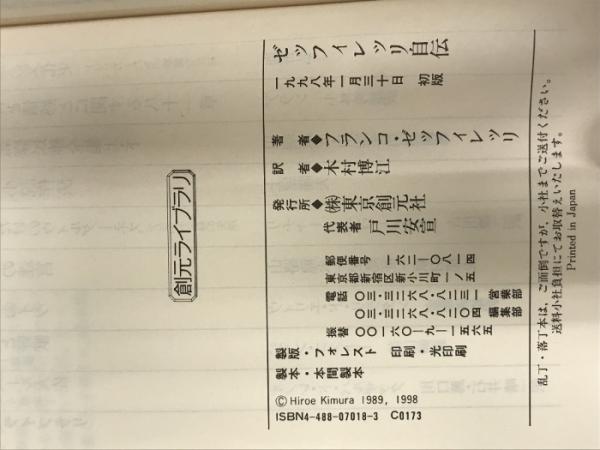 ゼッフィレッリ自伝
一九九八年一月三十日　初版
著者◆フランコ・ゼッフィレッリ
訳者◆木村博江
発行所◆㈱東京創元社
代表者　戸川安宣
郵便番号　一六二―〇八一四
東京都新宿区新小川町一ノ五
電話　〇三・三二六八・八二三一　営業部
〇三・三二六八・八二〇四　編集部
振替　〇〇一六〇―九―一五六五
製版・フォレスト　印刷・光印刷
製本・本間製本
© Hiroe Kimura 1989, 1998
ISBN4-488-07018-3 C0173
創元ライブラリ
乱丁・落丁本は、ご面倒ですが、小社までご送付ください。
送料小社負担にてお取替えいたします。
Printed in Japan